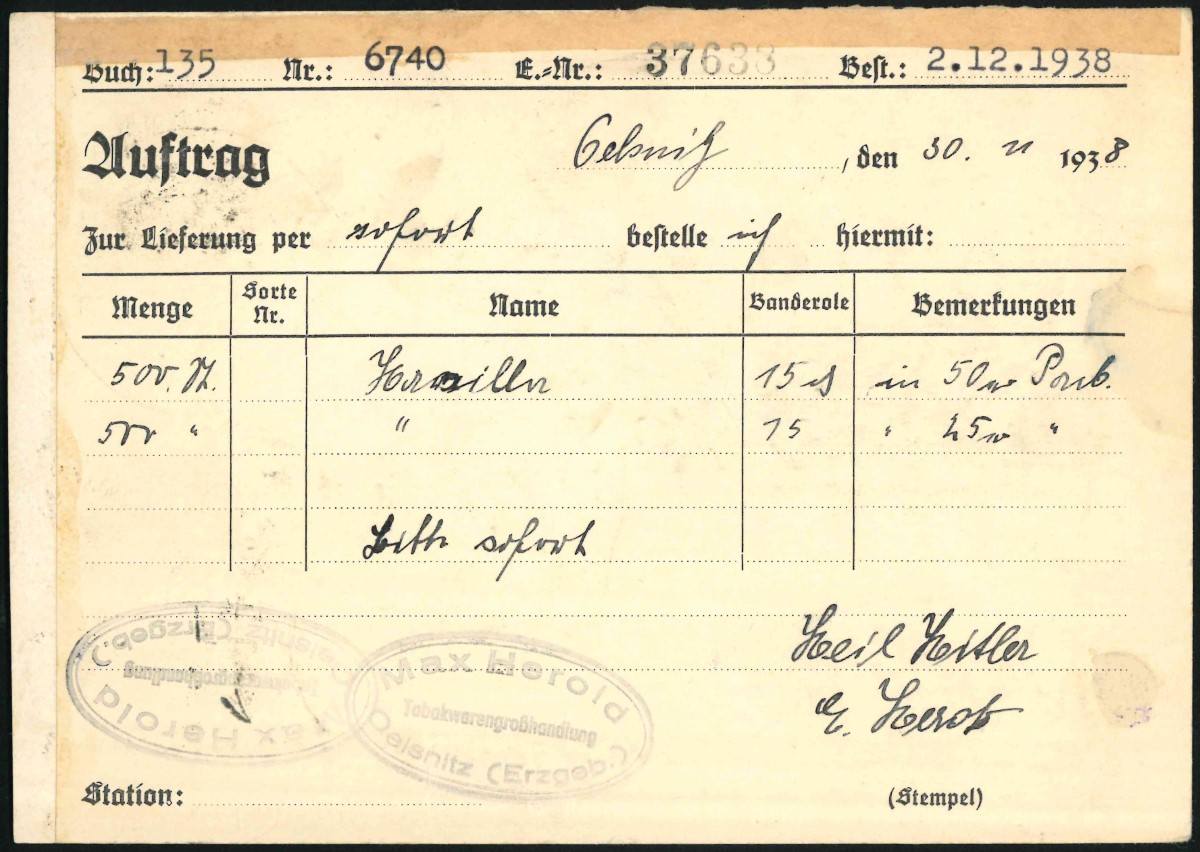 Buch: 135 Nr.: 6740 E.-Nr.: 37638 Best.: 2.12.1938
Auftrag Oelsnitz, den 30. 11 1938
Zur Lieferung per sofort bestelle ich hiermit:
Menge Sorte Nr. Name Banderole Bemerkungen
500 St. 15 in 50er Pack.
500 " " 15 " 25er "
Bitte sofort
Heil Hitler
Max Herold
Tabakwarengroßhandlung
Oelsnitz (Erzgeb.)
Max Herold
Tabakwarengroßhandlung
Oelsnitz (Erzgeb.)
Station: (Stempel)